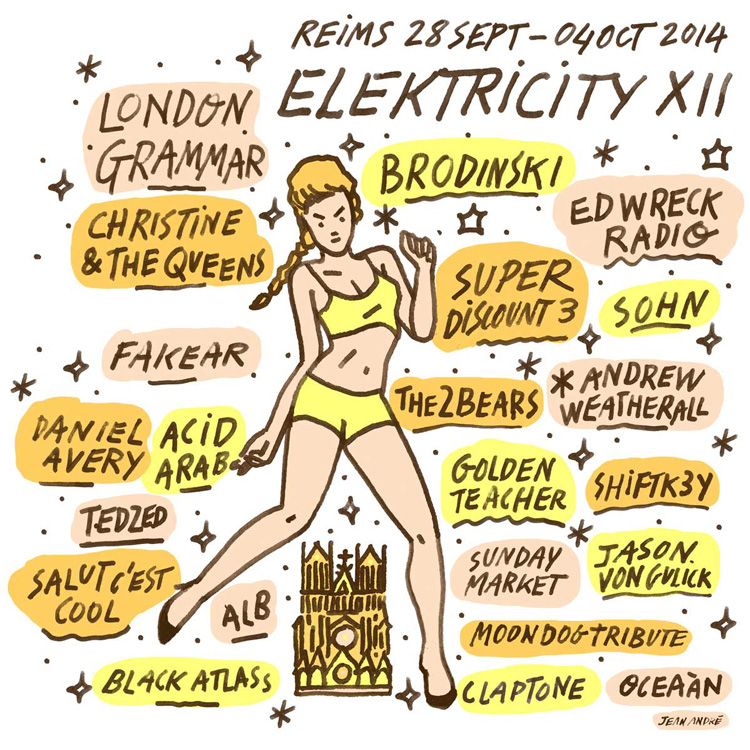 REIMS 28 SEPT - 04 OCT 2014
ELEKTRICITY XII
LONDON
GRAMMAR
BRODINSKI
CHRISTINE
& THE QUEENS
ED WRECK
RADIO
SUPER
DISCOUNT 3
SOHN
FAKEAR
THE 2 BEARS
*ANDREW
WEATHERALL
DANIEL
AVERY
ACID
ARAB
GOLDEN
TEACHER
SHIFTK3Y
TEDZED
SUNDAY
MARKET
JASON.
VONGULICK
SALUT C'EST
COOL
ALB
MOONDOG TRIBUTE
BLACK ATLASS
CLAPTONE
OCEAÀN
JEAN ANDRÉ